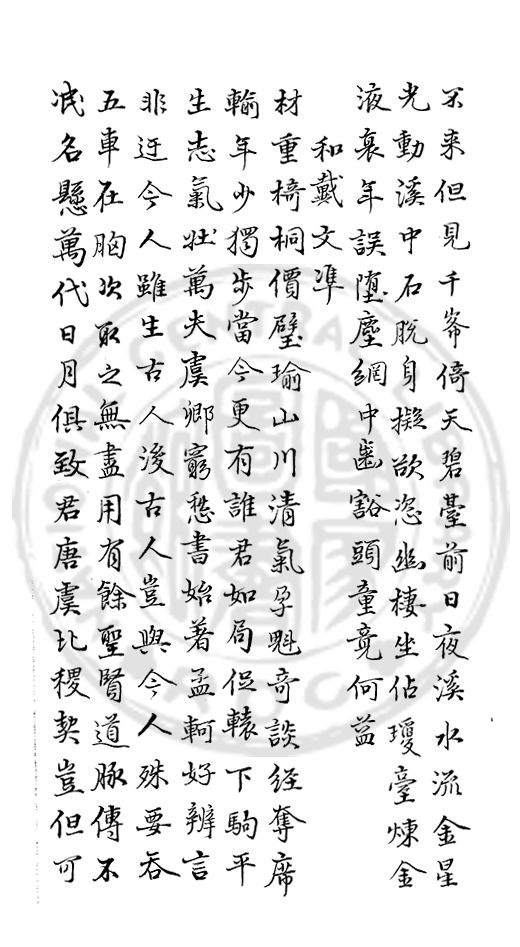 不来但見千峯倚天碧臺前日夜溪水流金星
光動溪中石脫身擬欲恣幽棲坐佔瓊臺煉金
液哀年誤墮塵網中齒豁頭童竟何益
和戴文凖
材重椅桐價璧瑜山川清氣孕魁奇談經奪席
輸年少獨步當今更有誰君如局促轅下駒平
生志氣壯萬夫虞卿窮愁書始著孟軻好辨言
非迂今人雖生古人後古人豈與今人殊要吞
五車在胸次取之無盡用有餘聖賢道脉傳不
泯名懸萬代日月俱致君唐虞比稷契豈但可